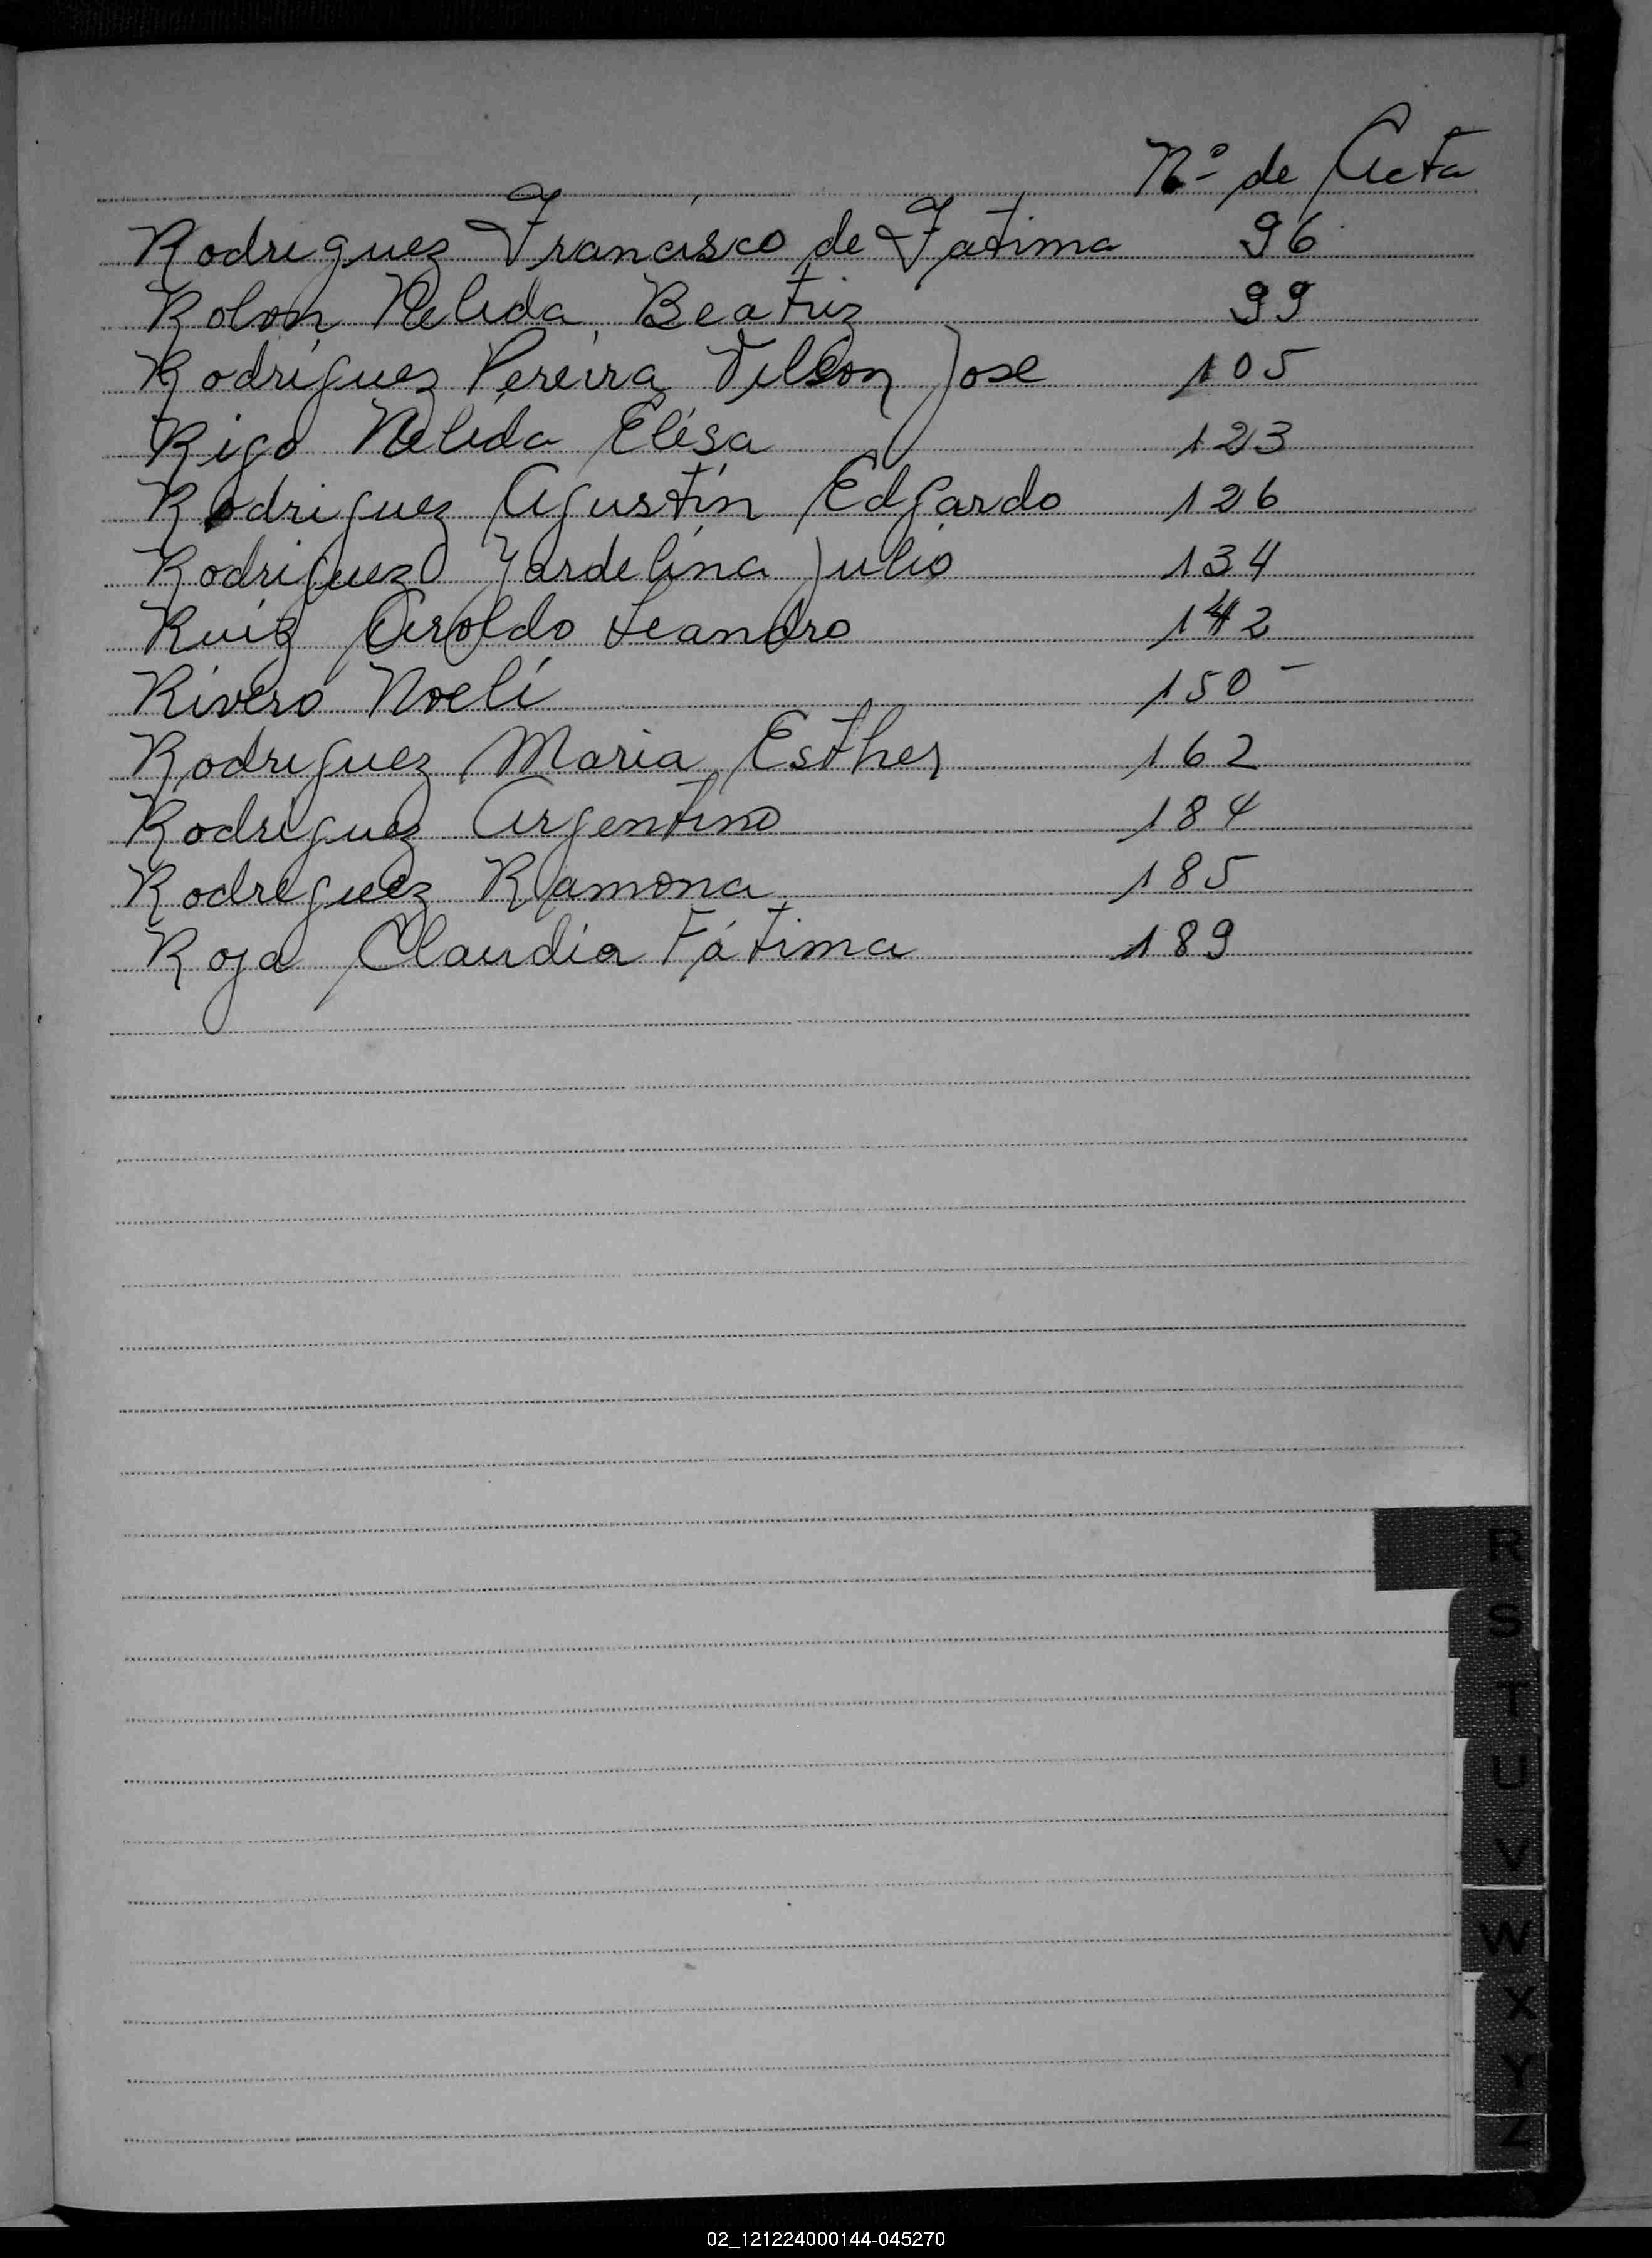 Nº de Acta
Rodriguez Francisco de Fatima 96
Rolon Nelida Beatriz 99
Rodriguez Pereira Vilson Jose 105
Rigo Nelida Elisa 123
Rodriguez Agustin Edgardo 126
Rodriguez Jardelina Julio 134
Ruiz Aroldo Leandro 142
Rivero Noeli 150-
Rodriguez Maria Esther 162
Rodriguez Argentino 184
Rodriguez Ramona 185
Roja Claudia Fátima 189
R
S
T
U
V
W
X
Y
Z
02_121224000144-045270